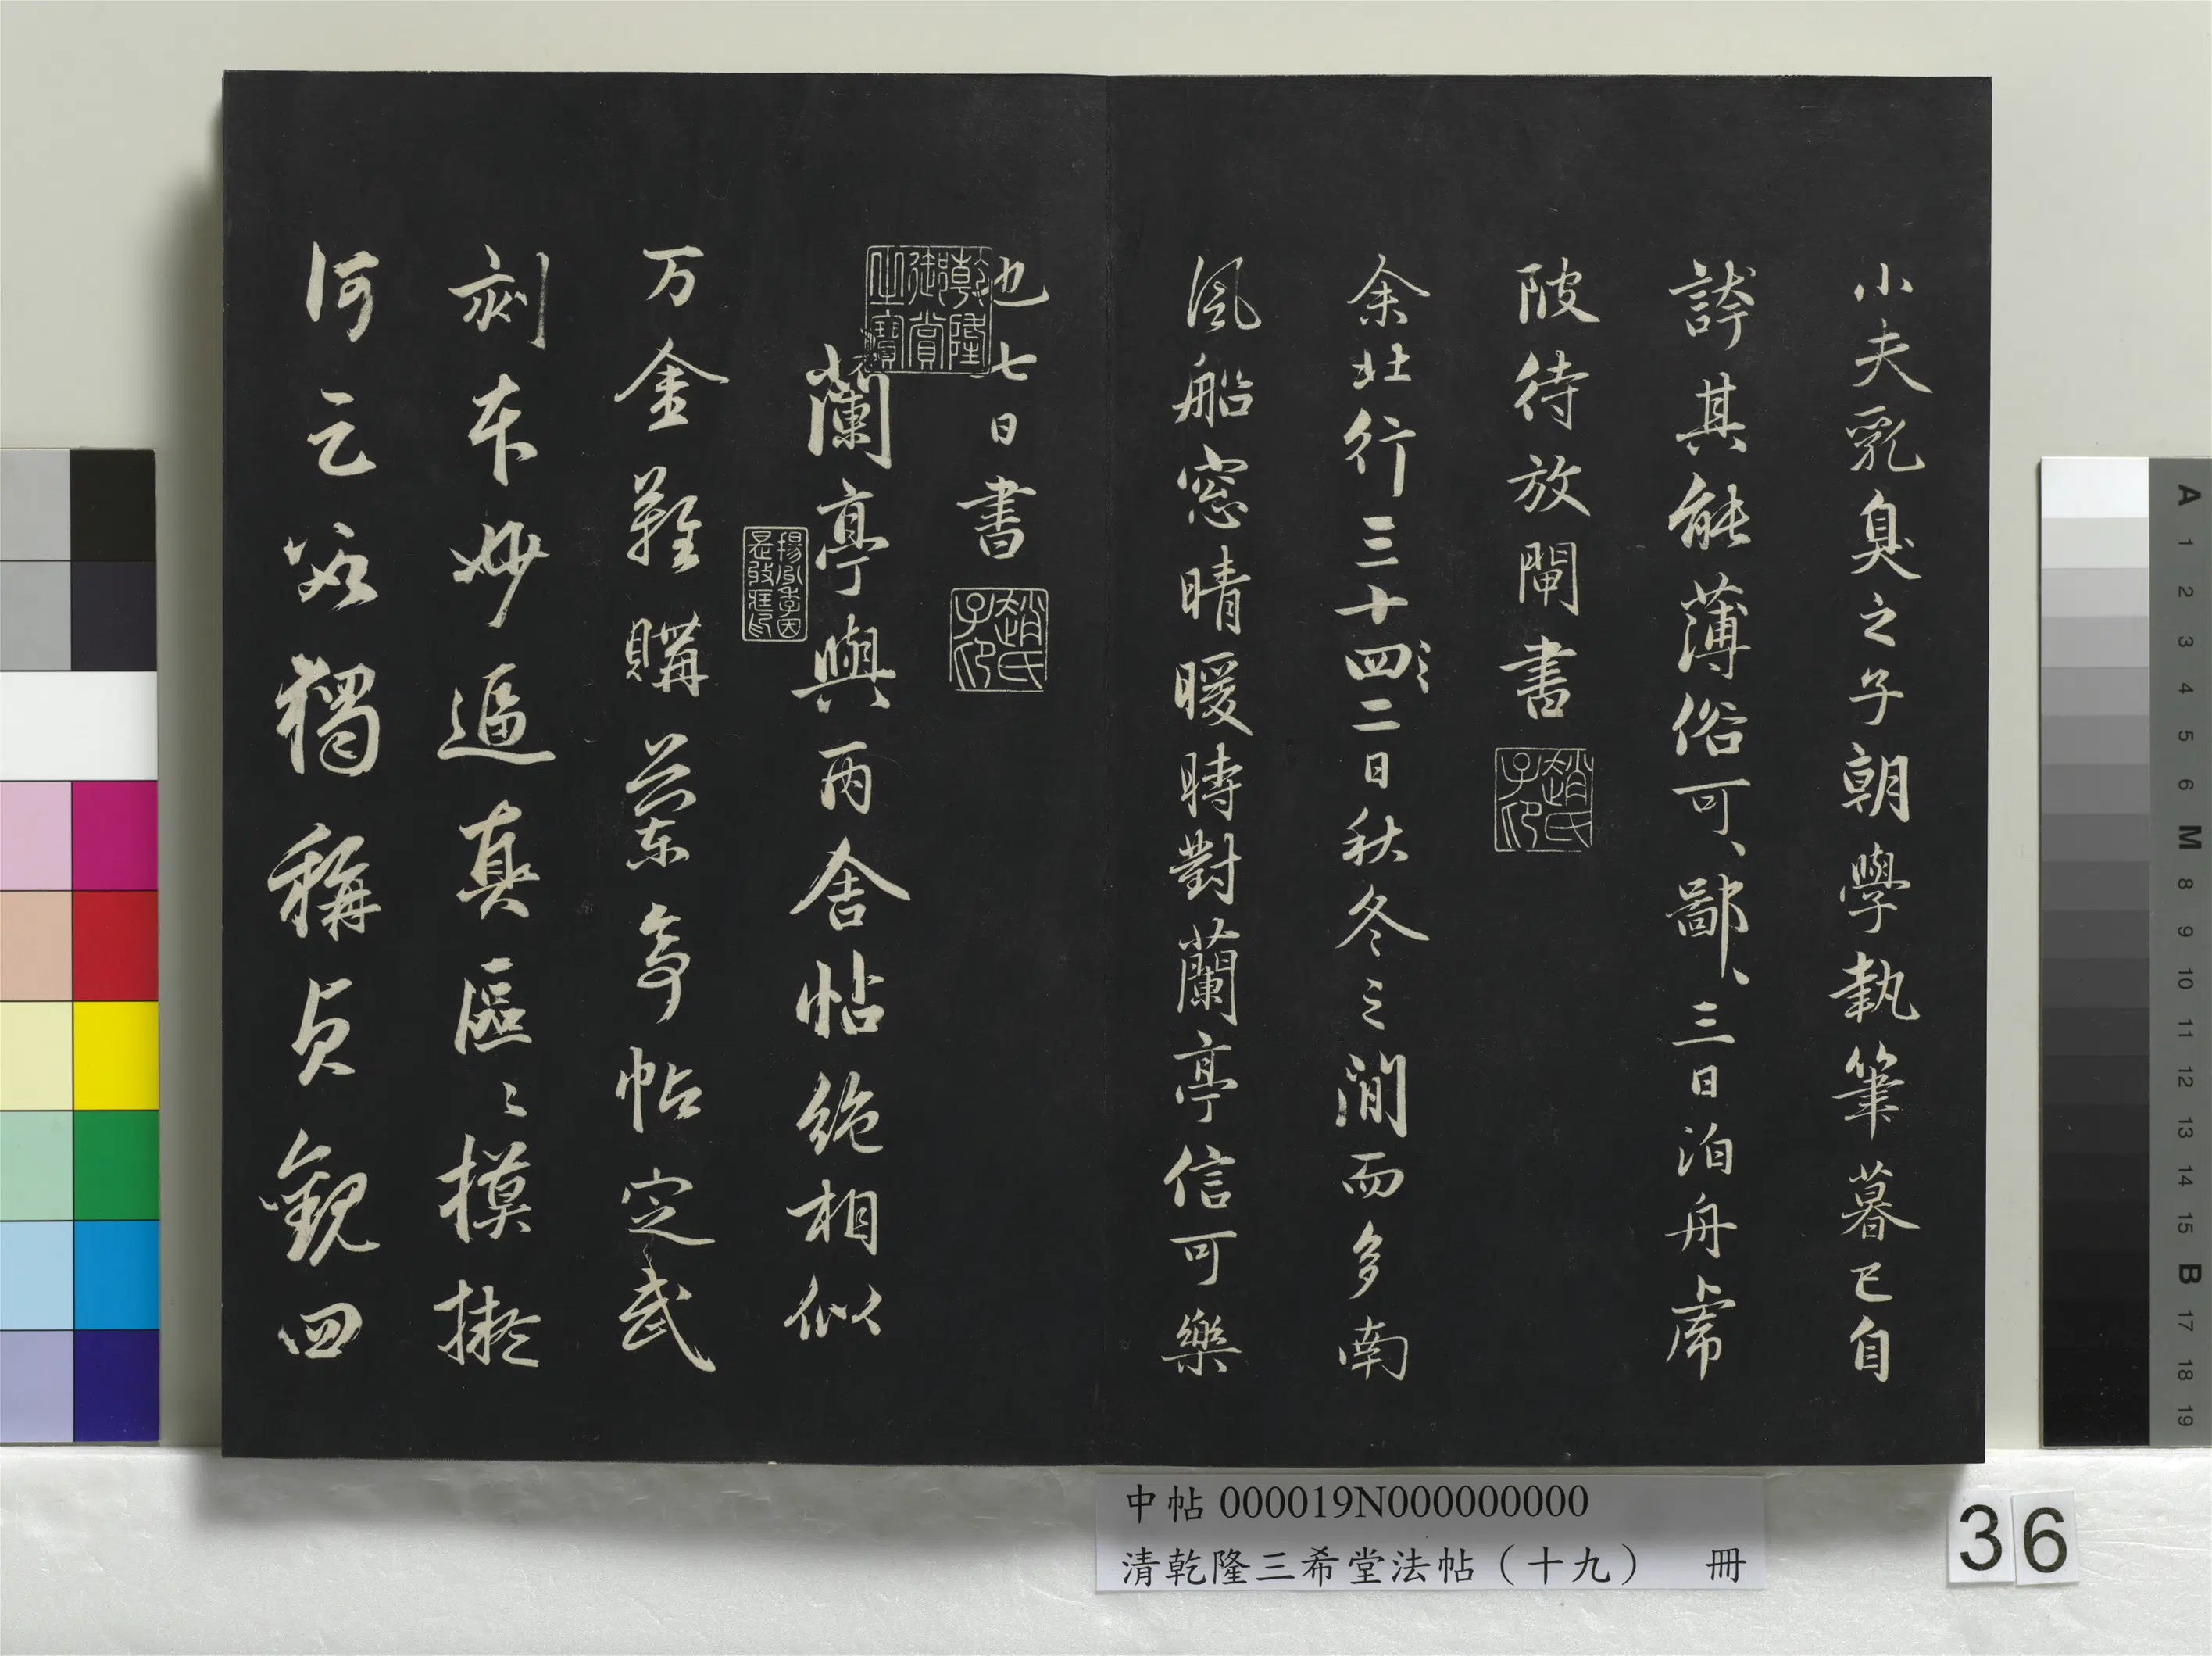 小夫乳臭之子朝學執筆暮已自
誇其能薄俗可、鄙、三日泊舟虎
陂待放閘書
趙氏子印
余北行三十四〻二日秋冬之間而多南
風船窓晴暖時對蘭亭信可樂
也七日書
趙氏子印
乾隆御賞之寶
蘭亭與丙舍帖絶相似
万金難購蘭亭帖定武
刻本妙逼真區〻摸擬
何之 獨稱貞觀四
中帖 000019N000000000
清乾隆三希堂法帖（十九） 冊
36
A 1 2 3 4 5 6 M 8 9 10 11 12 13 14 15 B 17 18 19